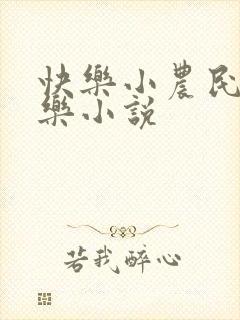 快樂小農民
樂小説
若我醉心